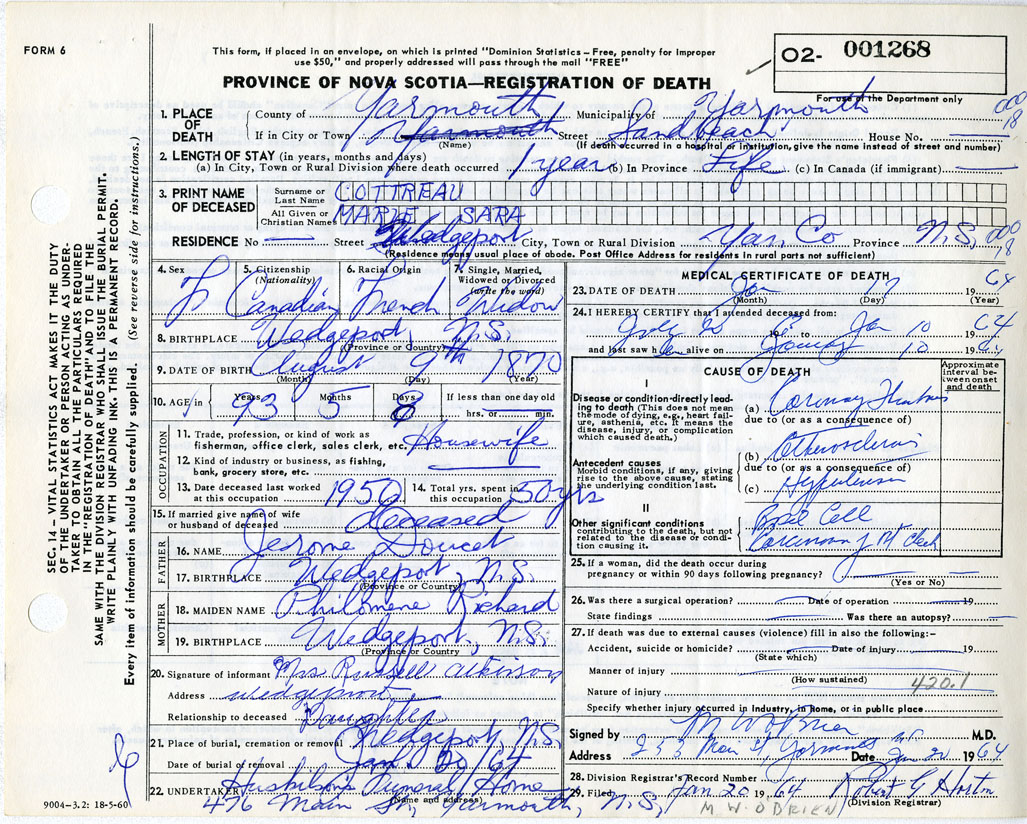 FORM 6
This form, if placed in an envelope, on which is printed "Dominion Statistics – Free, penalty for improper
use $50," and properly addressed will pass through the mail "FREE"
O2- 001268
For use of the Department only
PROVINCE OF NOVA SCOTIA—REGISTRATION OF DEATH
1. PLACE OF DEATH County of Yarmouth Municipality of Yarmouth 000
If in City or Town Yarmouth Street Sandbeach House No. 18
(Name) (If death occurred in a hospital or institution, give the name instead of street and number)
2. LENGTH OF STAY (in years, months and days)
(a) In City, Town or Rural Division where death occurred 1 year (b) In Province Life (c) In Canada (if immigrant)
3. PRINT NAME OF DECEASED Surname or Last Name COTTREAU
All Given or Christian Names MARIE SARA
RESIDENCE No Street Wedgeport City, Town or Rural Division Yar. Co Province N.S. 000 18
(Residence means usual place of abode. Post Office Address for residents in rural parts not sufficient)
4. Sex 5. Citizenship (Nationality) 6. Racial Origin 7. Single, Married, Widowed or Divorced (write the word)
F Canadian French Widow
8. BIRTHPLACE Wedgeport, N.S.
(Province or Country)
9. DATE OF BIRTH August 9th 1870
(Month) (Day) (Year)
10. AGE in Years Months Days If less than one day old
93 5 8 hrs. or min.
OCCUPATION
11. Trade, profession, or kind of work as fisherman, office clerk, sales clerk, etc. Housewife
12. Kind of industry or business, as fishing, bank, grocery store, etc.
13. Date deceased last worked at this occupation 1950 14. Total yrs. spent in this occupation 50 yrs
15. If married give name of wife or husband of deceased deceased
FATHER
16. NAME Jerome Doucet
17. BIRTHPLACE Wedgeport, N.S.
(Province or Country)
MOTHER
18. MAIDEN NAME Philomene Richard
19. BIRTHPLACE Wedgeport, N.S.
(Province or Country)
20. Signature of informant Mrs Russell Atkinson
Address Wedgeport
Relationship to deceased Daughter
21. Place of burial, cremation or removal Wedgeport, N.S.
Date of burial or removal Jan 20/64
22. UNDERTAKER Huskilson's Funeral Home
(Name and address)
476 Main St, Yarmouth, N.S.
9004–3.2: 18-5-60
MEDICAL CERTIFICATE OF DEATH
23. DATE OF DEATH Jan 17 1964
(Month) (Day) (Year)
24. I HEREBY CERTIFY that I attended deceased from:
to Jan 10 1964
and last saw her alive on 10 1964
CAUSE OF DEATH
Approximate interval between onset and death
I
Disease or condition directly leading to death (This does not mean the mode of dying, e.g., heart failure, asthenia, etc. It means the disease, injury, or complication which caused death.)
(a) Coronary Thrombosis
due to (or as a consequence of)
Antecedent causes
Morbid conditions, if any, giving rise to the above cause, stating the underlying condition last.
(b) Atherosclerosis
due to (or as a consequence of)
(c) Hypertension
II
Other significant conditions contributing to the death, but not related to the disease or condition causing it.
Basal Cell
Carcinoma of Rt Cheek
25. If a woman, did the death occur during pregnancy or within 90 days following pregnancy?
(Yes or No)
26. Was there a surgical operation? Date of operation 19
State findings Was there an autopsy?
27. If death was due to external causes (violence) fill in also the following:–
Accident, suicide or homicide? Date of injury 19
(State which)
Manner of injury
(How sustained)
Nature of injury 420.1
Specify whether injury occurred in Industry, in home, or in public place
Signed by M W O'Brien M.D.
Address 253 Main St Yarmouth NS Date Jan 20 1964
28. Division Registrar's Record Number
29. Filed Jan 20 1964 Robert G Horton
(Division Registrar)
M. W. O'BRIEN
SEC. 14 – VITAL STATISTICS ACT MAKES IT THE DUTY
OF THE UNDERTAKER OR PERSON ACTING AS UNDER-
TAKER TO OBTAIN ALL THE PARTICULARS REQUIRED
IN THE "REGISTRATION OF DEATH" AND TO FILE THE
SAME WITH THE DIVISION REGISTRAR WHO SHALL ISSUE THE BURIAL PERMIT.
WRITE PLAINLY WITH UNFADING INK. THIS IS A PERMANENT RECORD.
Every item of information should be carefully supplied. (See reverse side for instructions.)